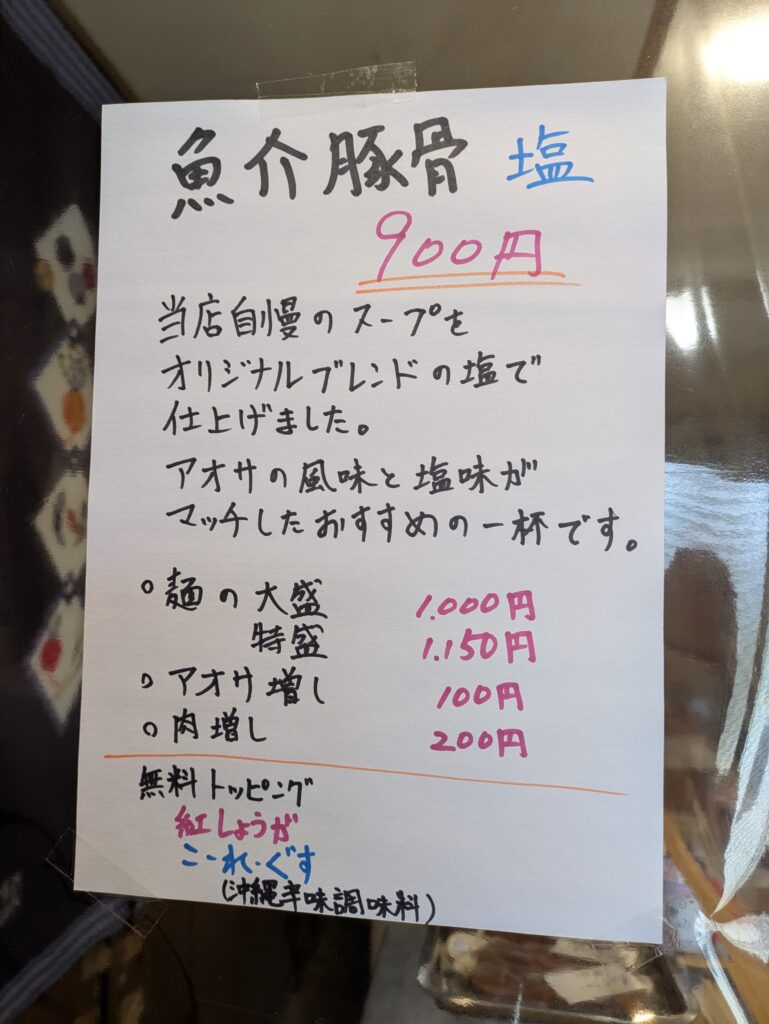 魚介豚骨 塩
900円
当店自慢のスープを
オリジナルブレンドの塩で
仕上げました。
アオサの風味と塩味が
マッチしたおすすめの一杯です。
○麺の大盛 1.000円
特盛 1.150円
○アオサ増し 100円
○肉増し 200円
無料トッピング
紅しょうが
こーれーぐす
(沖縄辛味調味料)